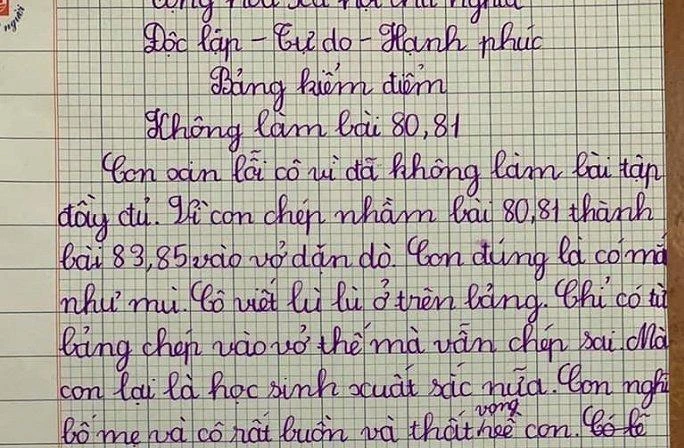 người
Cộng hòa xã hội chủ nghĩa
Độc lập - Tự do - Hạnh phúc
Bảng kiểm điểm
Không làm bài 80,81
Con xin lỗi cô vì đã không làm bài tập
đầy đủ. Vì con chép nhầm bài 80,81 thành
bài 83,85 vào vở dặn dò. Con đúng là có mắ
như mù. Cô viết lù lù ở trên bảng. Chỉ có từ
bảng chép vào vở thế mà vẫn chép sai. Mà
con lại là học sinh xuất sắc nữa. Con nghĩ
vọng
bố mẹ và cô rất buồn và thất về con. Có lẽ